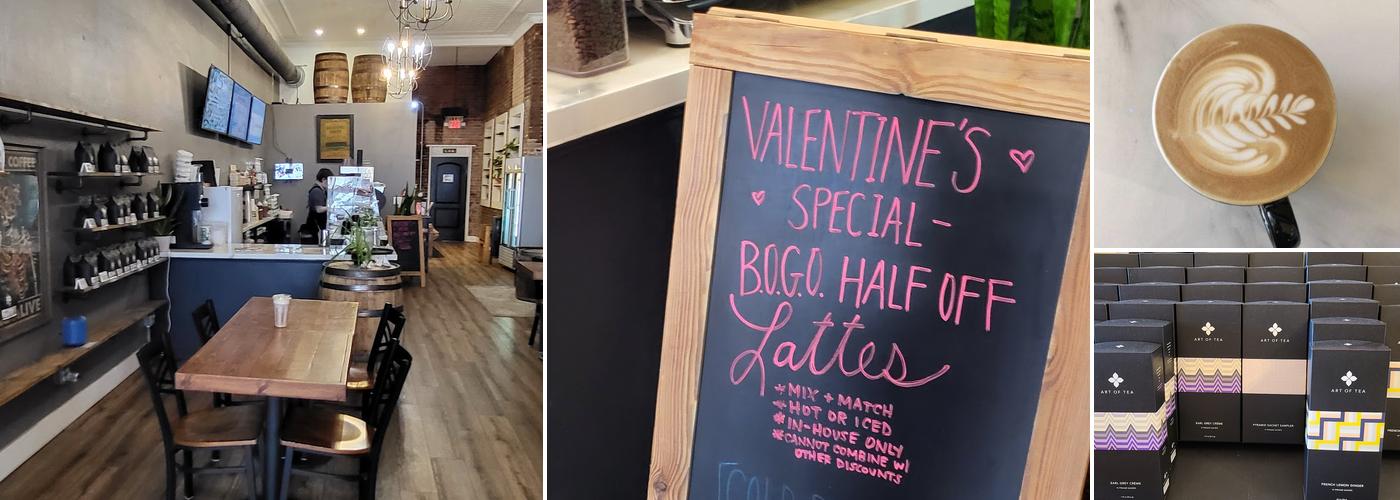 COFFEE
LIVE
EXIT
VALENTINE'S
SPECIAL-
B.O.G.O. HALF OFF
Lattes
*MIX + MATCH
*HOT OR ICED
*IN-HOUSE ONLY
*CANNOT COMBINE W/
OTHER DISCOUNTS
ART OF TEA
EARL GREY CRÈME
ART OF TEA
EARL GREY CRÈME
ART OF TEA
PYRAMID SACHET SAMPLER
ART OF TEA
FRENCH LEMON GINGER